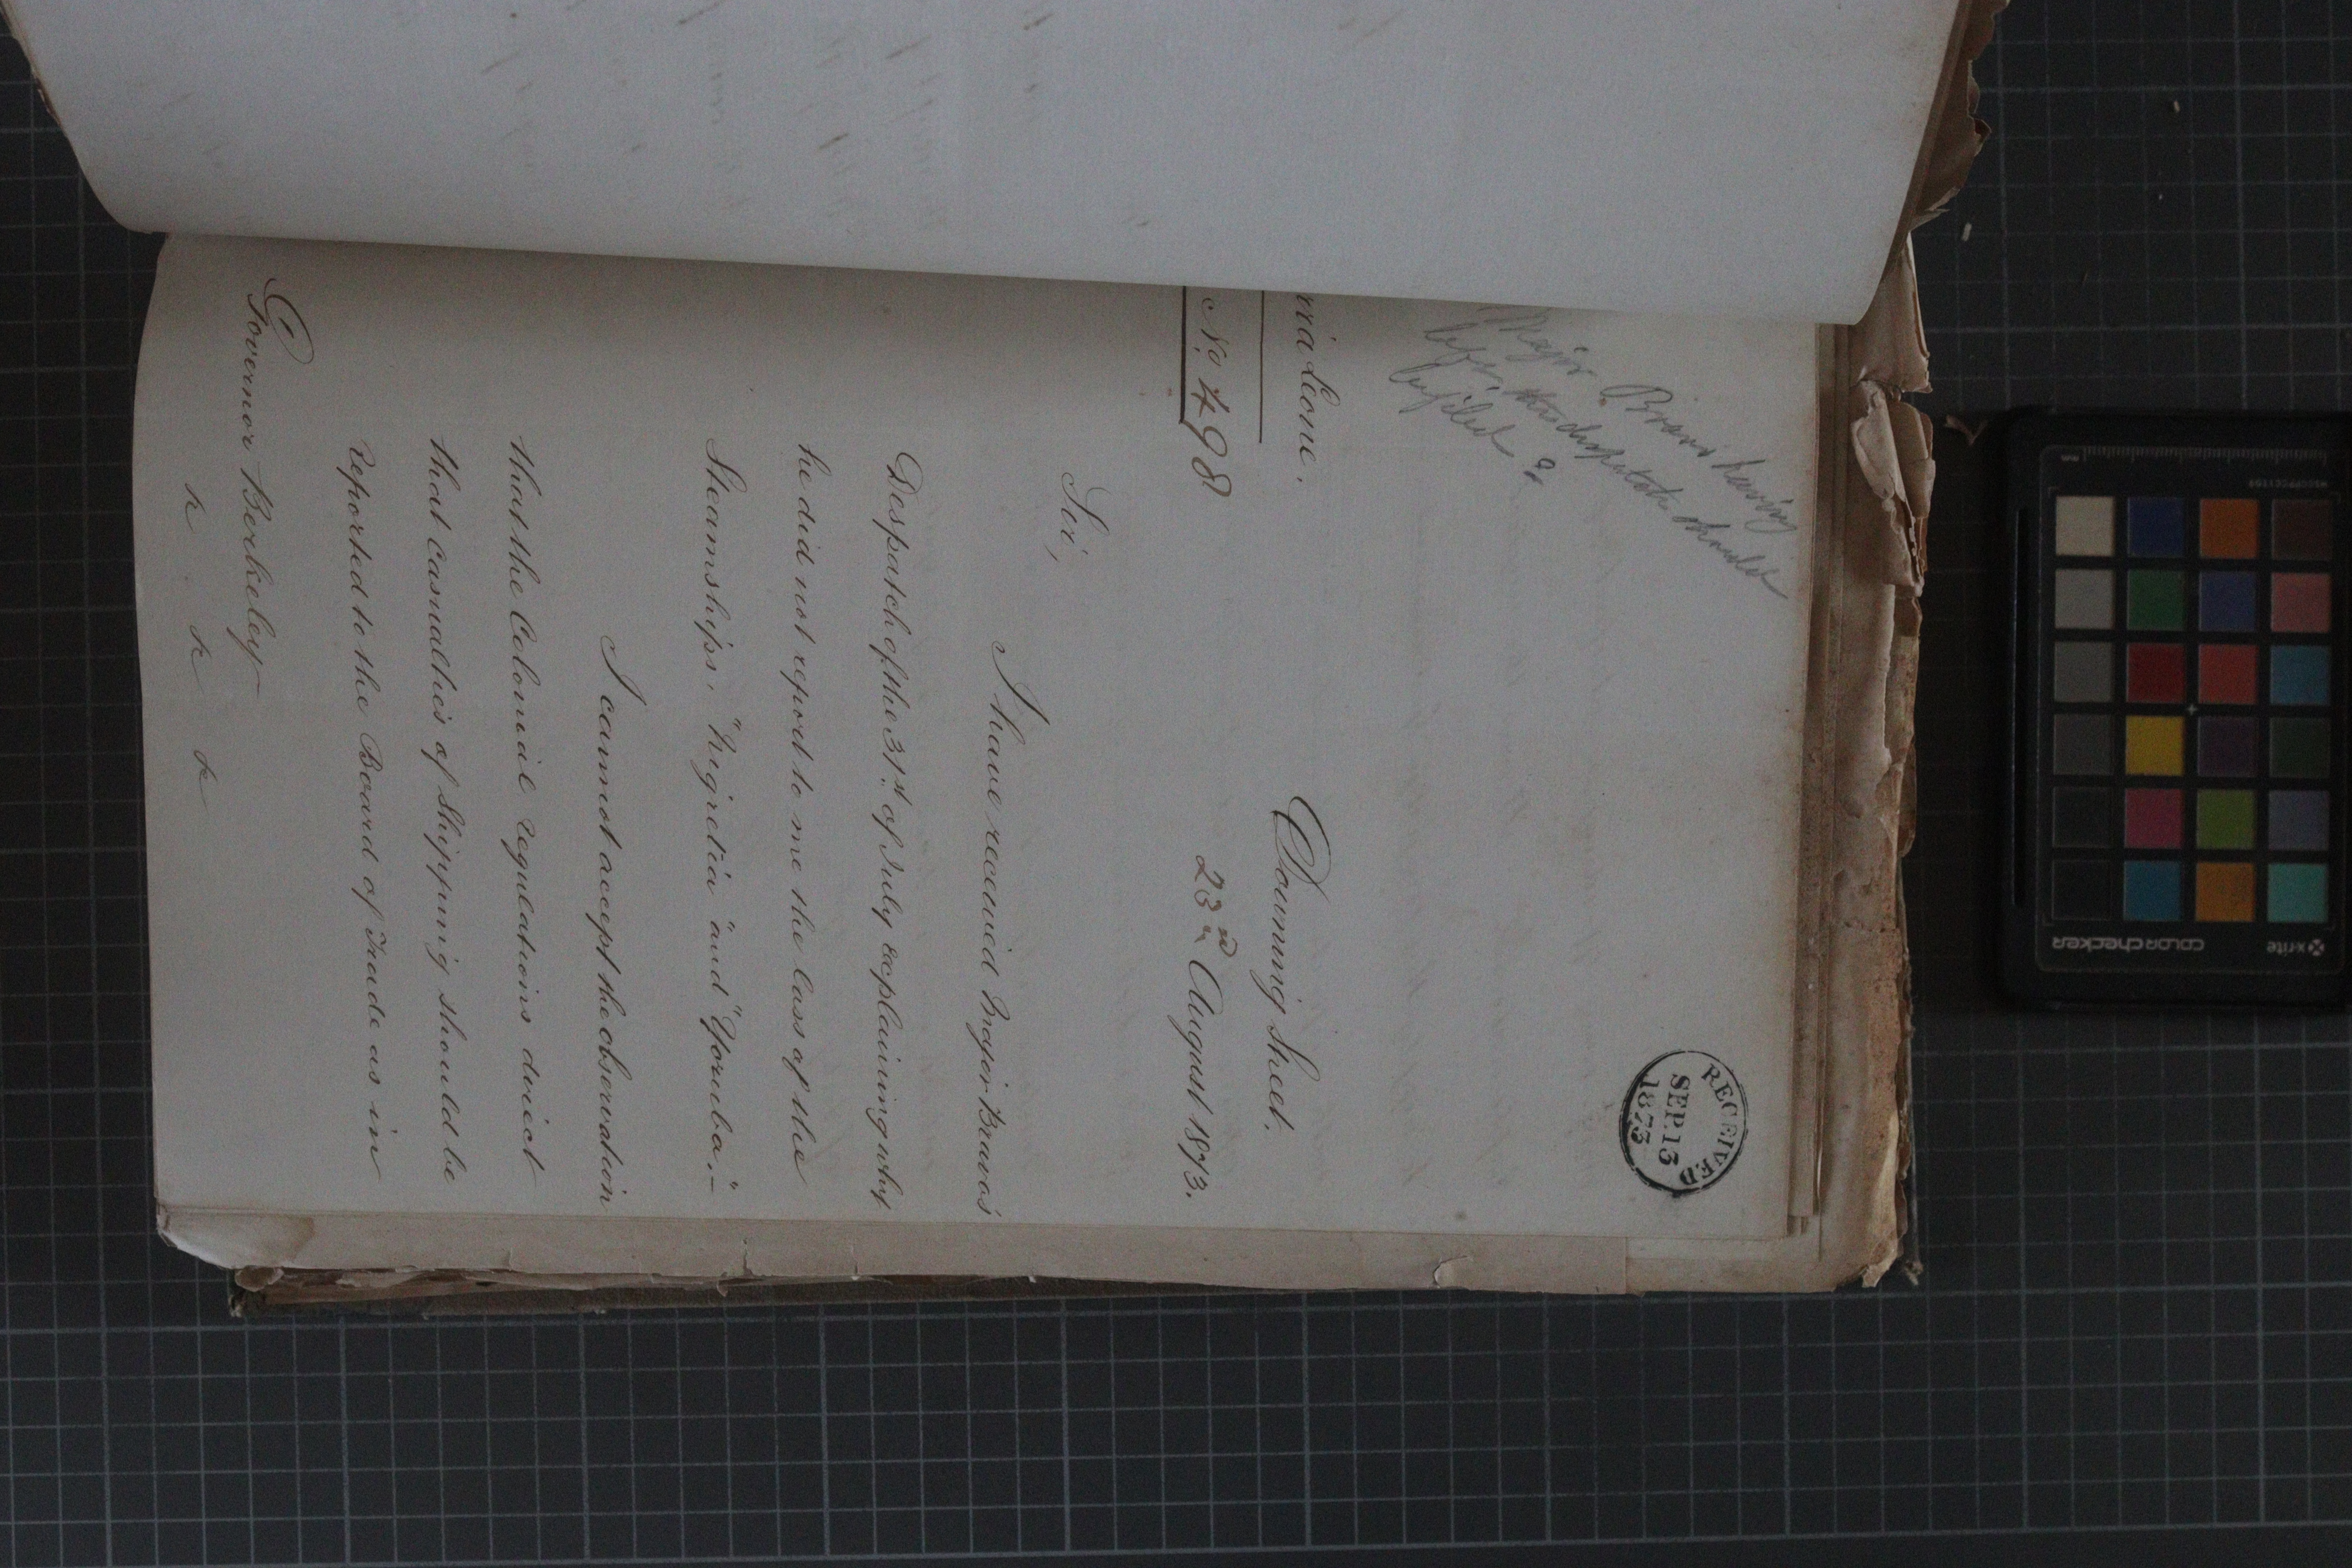 RECEIVED
SEP. 13
1873
Major Bravo having
left, this despatch should
be filed?
rra Leone.
No. 498
Downing Street.
23rd August 1873.
Sir,
I have received Major Bravo's
Despatch of the 31st of July explaining why
he did not report to me the loss of the
Steamships, "Nigretia" and "Yoruba."–
I cannot accept the observation
that the Colonial regulations direct
that casualties of Shipping should be
reported to the Board of Trade as in
Governor Berkeley
&c &c &c
x-rite
colorchecker